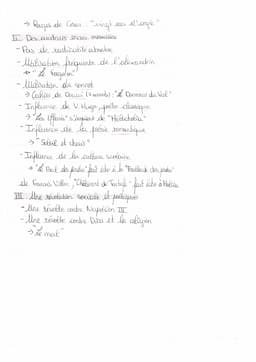 → Roger de Cous : "vingt ans d'angle"
II. Des audaces encore mesurées
- Pas de radicalité absolue
- Utilisation fréquente de l'alexandrin
→ "Le Forgeron"
- Utilisation du sonnet
→ Cahier de Douai (sonnets) : "Le Dormeur du Val"
- Influence de V. Hugo, poète classique
→ "Les Effarés" s'inspirent de "Mélancholia"
- Influence de la poésie romantique
→ "Soleil et chair"
- Influence de la culture scolaire
→ "Le Bal des pendus" fait écho à la "Ballade des pendus"
de François Villon, "Châtiment de Tartufe" fait écho à Molière
III. Une révolution sociale et politique
- Une révolte contre Napoléon III
- Une révolte contre Dieu et la religion
→ "Le mal"